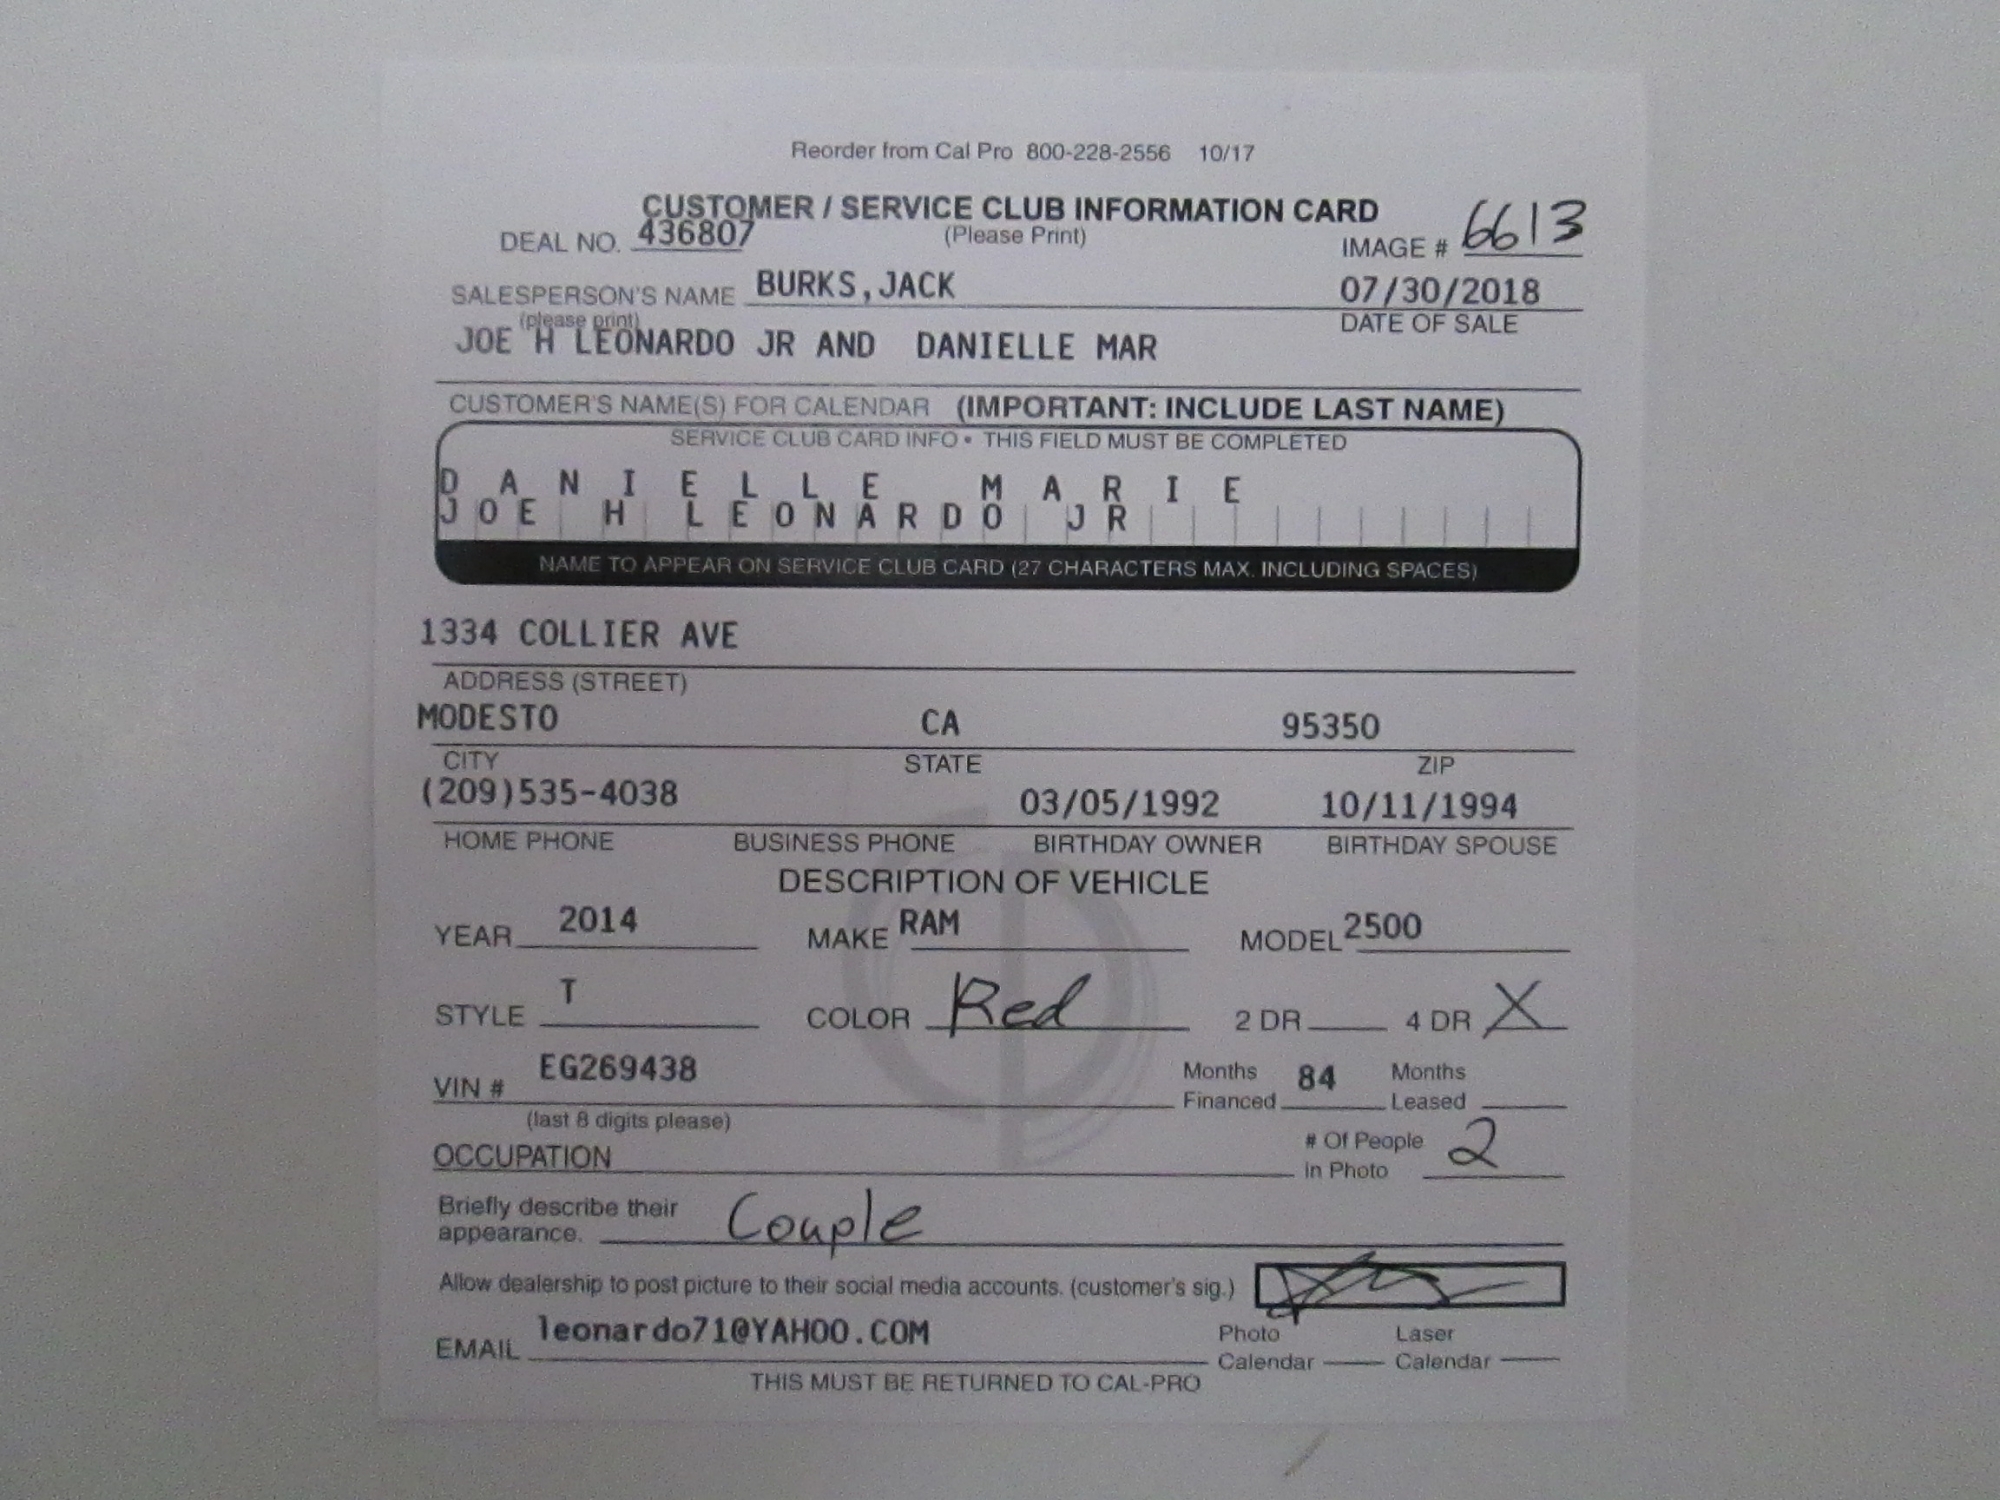 Reorder from Cal Pro 800-228-2556 10/17
CUSTOMER / SERVICE CLUB INFORMATION CARD
DEAL NO. 436807 (Please Print) IMAGE # 6613
SALESPERSON'S NAME BURKS,JACK 07/30/2018
(please print) DATE OF SALE
JOE H LEONARDO JR AND DANIELLE MAR
CUSTOMER'S NAME(S) FOR CALENDAR (IMPORTANT: INCLUDE LAST NAME)
SERVICE CLUB CARD INFO • THIS FIELD MUST BE COMPLETED
DANIELLE MARIE
JOE H LEONARDO JR
NAME TO APPEAR ON SERVICE CLUB CARD (27 CHARACTERS MAX. INCLUDING SPACES)
1334 COLLIER AVE
ADDRESS (STREET)
MODESTO CA 95350
CITY STATE ZIP
(209)535-4038 03/05/1992 10/11/1994
HOME PHONE BUSINESS PHONE BIRTHDAY OWNER BIRTHDAY SPOUSE
DESCRIPTION OF VEHICLE
YEAR 2014 MAKE RAM MODEL 2500
STYLE T COLOR Red 2 DR 4 DR X
VIN # EG269438 Months Financed 84 Months Leased
(last 8 digits please)
OCCUPATION # Of People in Photo 2
Briefly describe their appearance. Couple
Allow dealership to post picture to their social media accounts. (customer's sig.)
EMAIL leonardo71@YAHOO.COM Photo Calendar Laser Calendar
THIS MUST BE RETURNED TO CAL-PRO